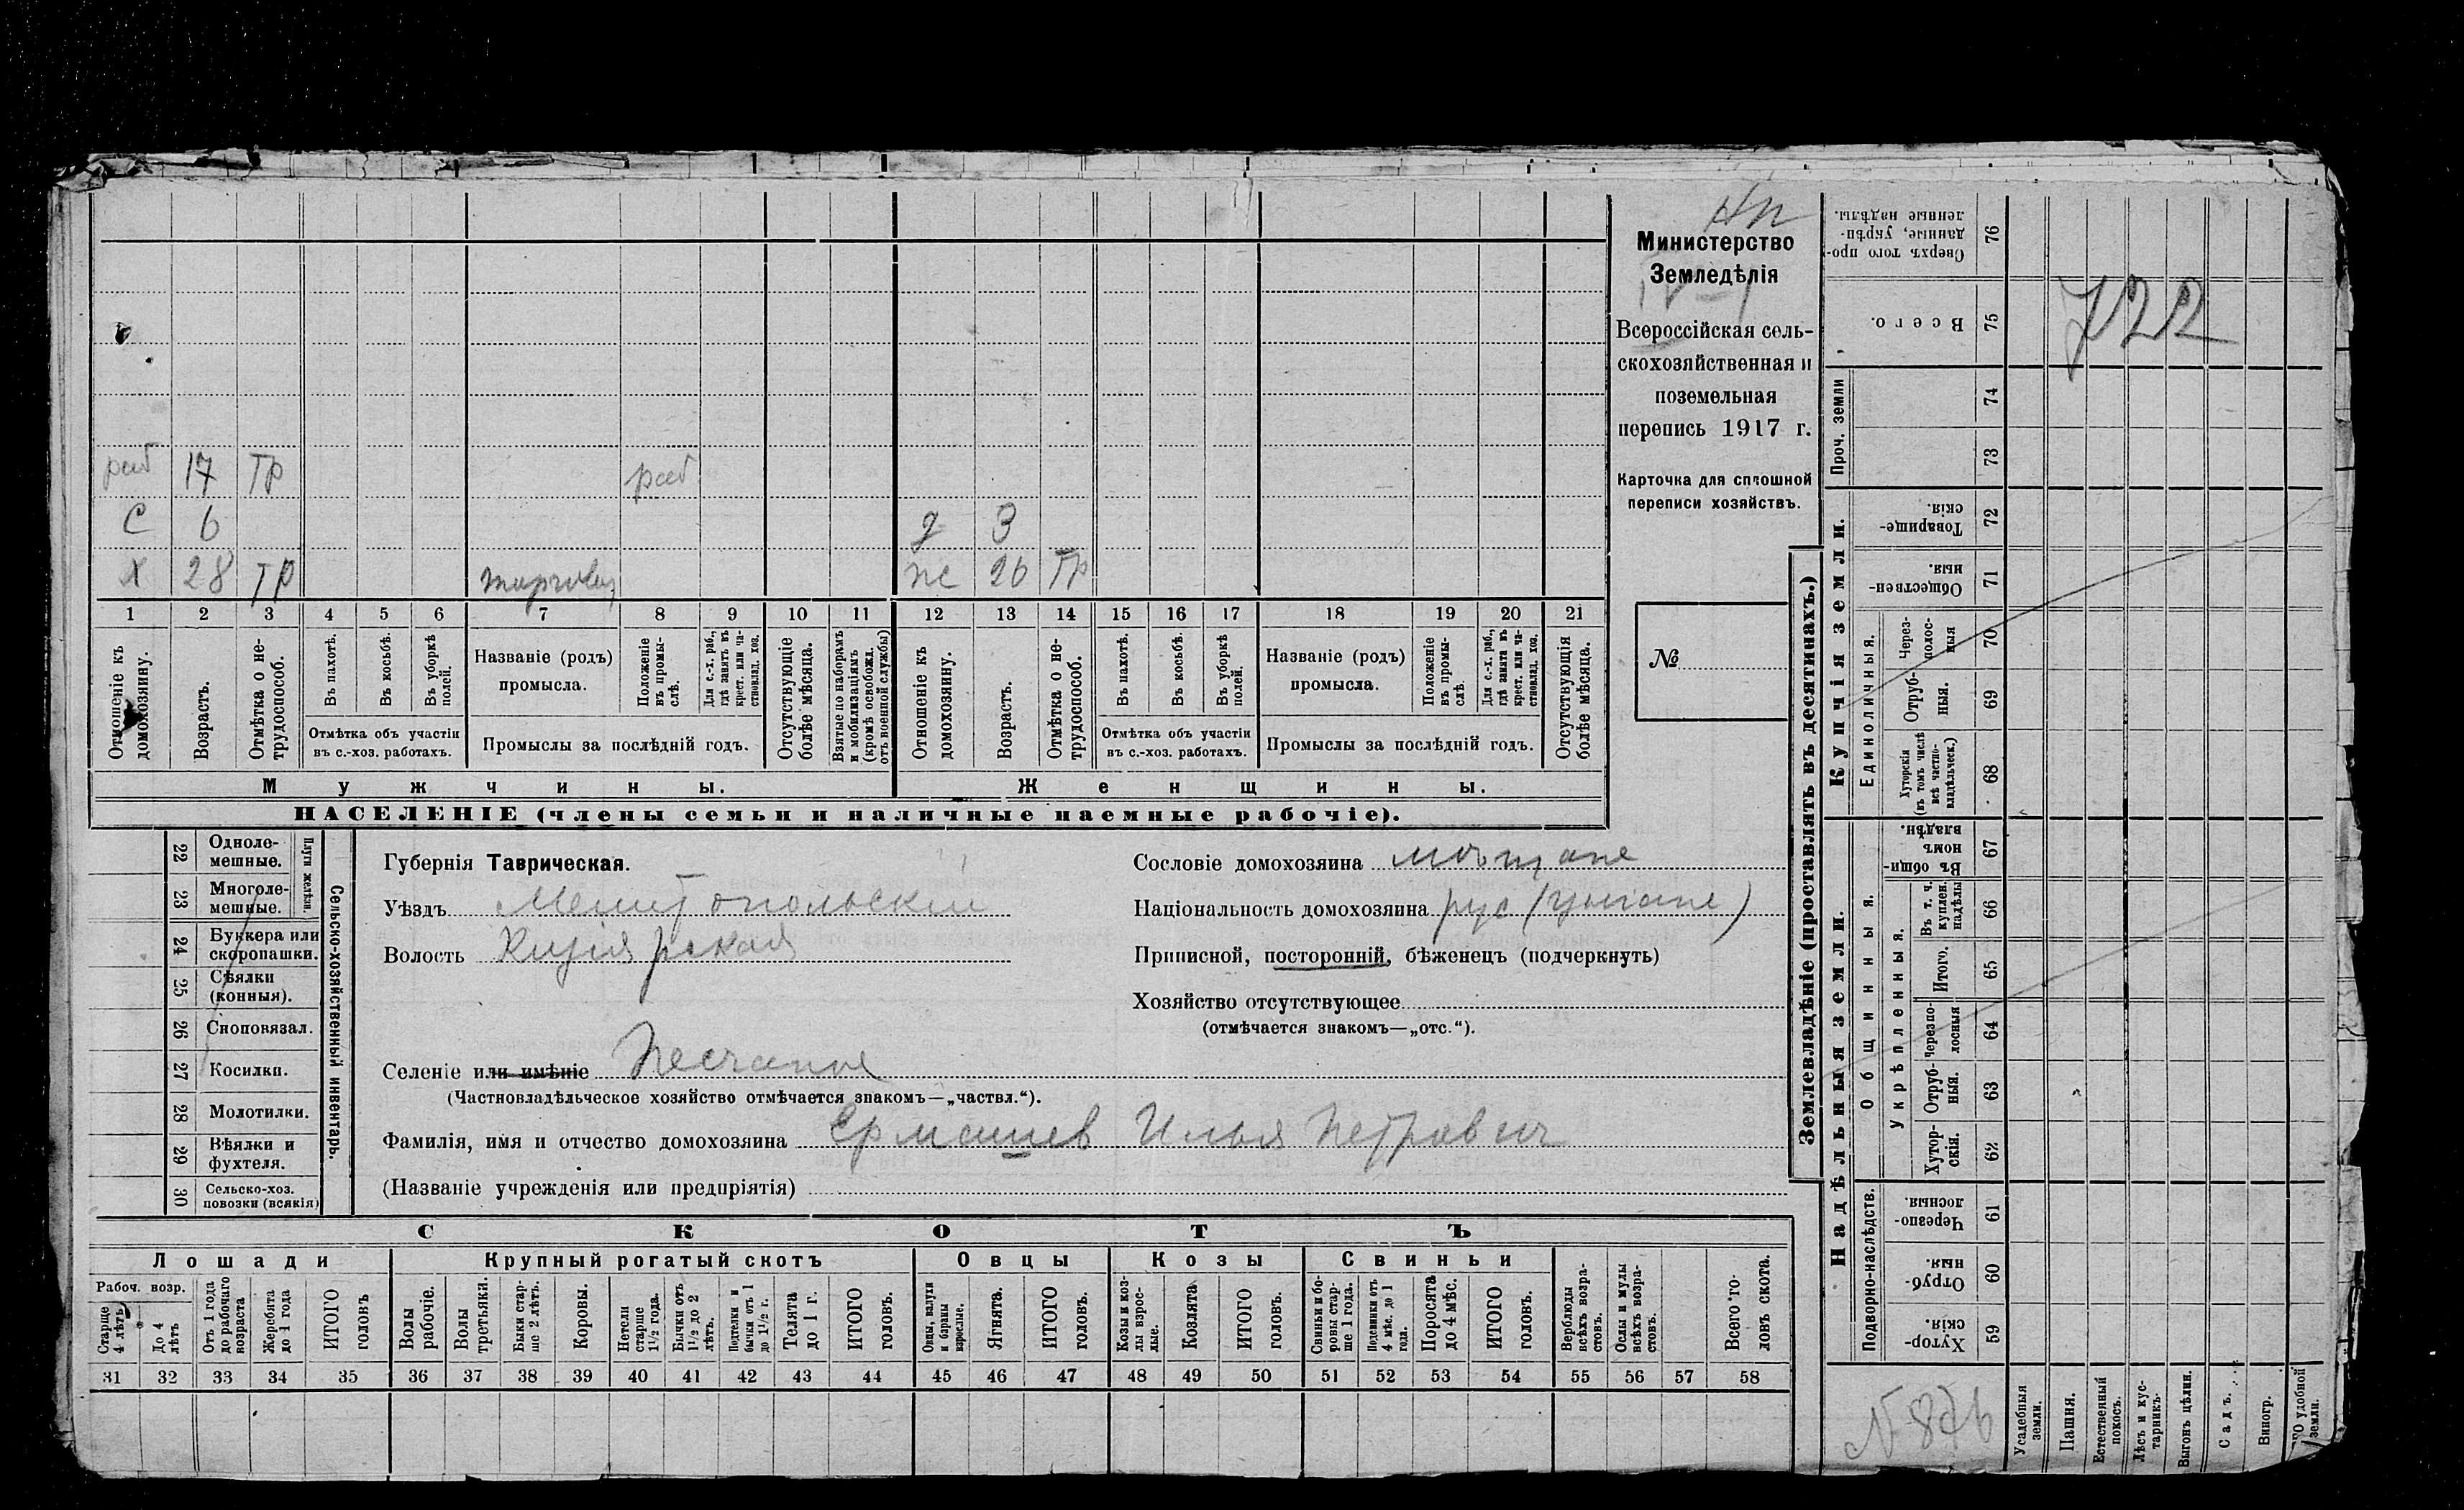 раб 17 тр раб
с 6 д 3
х 28 тр торговец ж 26 тр
1 2 3 4 5 6 7 8 9 10 11 12 13 14 15 16 17 18 19 20 21
Отношеніе къ домохозяину.
Возрастъ.
Отмѣтка о не-
трудоспособ.
Въ пахотѣ.
Въ косьбѣ.
Въ уборкѣ полей.
Отмѣтка объ участіи
въ с.-хоз. работахъ.
Названіе (родъ)
промысла.
Положеніе
въ промы-
слѣ.
Для с.-х. раб.,
гдѣ занятъ въ
крест. или ча-
стновлад. хоз.
Промыслы за послѣдній годъ.
Отсутствующіе
болѣе мѣсяца.
Взятые по наборамъ
и мобилизаціямъ
(кромѣ освобожд.
отъ военной службы)
Отношеніе къ
домохозяину.
Возрастъ.
Отмѣтка о не-
трудоспособ.
Въ пахотѣ.
Въ косьбѣ.
Въ уборкѣ
полей.
Отмѣтка объ участіи
въ с.-хоз. работахъ.
Названіе (родъ)
промысла.
Положеніе
въ промы-
слѣ.
Для с.-х. раб.,
гдѣ занята въ
крест. или ча-
стновлад. хоз.
Промыслы за послѣдній годъ.
Отсутствующія
болѣе мѣсяца.
Мужчины.
Женщины.
НАСЕЛЕНІЕ (члены семьи и наличные наемные рабочіе).
Министерство
Земледѣлія
Всероссійская сель-
скохозяйственная и
поземельная
перепись 1917 г.
Карточка для сплошной
переписи хозяйствъ.
№
22 Одноле-
мешные.
23 Многоле-
мешные.
Плуги желѣзн.
24 Буккера или
скоропашки.
25 Сѣялки
(конныя).
26 Сноповязал.
27 Косилки.
28 Молотилки.
29 Вѣялки и
фухтеля.
30 Сельско-хоз.
повозки (всякія)
Сельско-хозяйственный инвентарь.
Губернія Таврическая.
Уѣздъ Мелитопольскій
Волость Кизіярская
Селеніе или имѣніе Песчаное
(Частновладѣльческое хозяйство отмѣчается знакомъ—„частвл.“).
Фамилія, имя и отчество домохозяина Ермашев Илья Петрович
(Названіе учрежденія или предпріятія)
Сословіе домохозяина мѣщане
Національность домохозяина рус (цыгане)
Приписной, посторонній, бѣженецъ (подчеркнуть)
Хозяйство отсутствующее
(отмѣчается знакомъ—„отс.“).
СКОТЪ
Лошади
Рабоч. возр.
Старше
4 лѣтъ
До 4
лѣтъ
Отъ 1 года
до рабочаго
возраста
Жеребята
до 1 года
ИТОГО
головъ
Крупный рогатый скотъ
Волы
рабочіе.
Волы
третьяки.
Быки стар-
ше 2 лѣтъ.
Коровы.
Нетели
старше
1½ года.
Бычки отъ
1½ до 2
лѣтъ.
Подтелки и
бычки отъ 1
до 1½ г.
Телята
до 1 г.
ИТОГО
головъ.
Овцы
Овцы, валухи
и бараны
взрослые.
Ягнята.
ИТОГО
головъ.
Козы
Козы и коз-
лы взрос-
лые.
Козлята
ИТОГО
головъ.
Свиньи
Свиньи и бо-
ровы стар-
ше 1 года.
Подсвинки отъ
4 мѣс. до 1
года.
Поросята
до 4 мѣс.
ИТОГО
головъ.
Верблюды
всѣхъ возра-
стовъ.
Ослы и мулы
всѣхъ возра-
стовъ.
Всего го-
ловъ скота.
31 32 33 34 35 36 37 38 39 40 41 42 43 44 45 46 47 48 49 50 51 52 53 54 55 56 57 58
Землевладѣніе (проставлять въ десятинахъ.)
Сверхъ того про-
данные, укрѣп-
ленные надѣлы.
76
Всего.
75
722
Проч. земли
74
73
Купчія земли.
Товарище-
скія.
72
Обществен-
ныя.
71
Единоличныя.
Через-
полос-
ныя
70
Отруб-
ныя.
69
Хуторскія
(въ томъ числѣ
всѣ частно-
владѣльческ.)
68
Надѣльныя земли.
Общинныя.
Въ общи-
номъ
владѣн.
67
Укрѣпленныя.
Въ т. ч.
куплен.
надѣлы
66
Итого.
65
Черезпо-
лосныя
64
Отруб-
ныя.
63
Хутор-
скія.
62
Подворно-наслѣдств.
Черезпо-
лосныя
61
Отруб-
ныя.
60
Хутор-
скія.
59
N 876
Усадебныя
земли.
Пашня.
Естественный
покосъ.
Лѣсъ и кус-
тарникъ.
Выгонъ цѣлин.
Садъ.
Виногр.
удобной
земли.